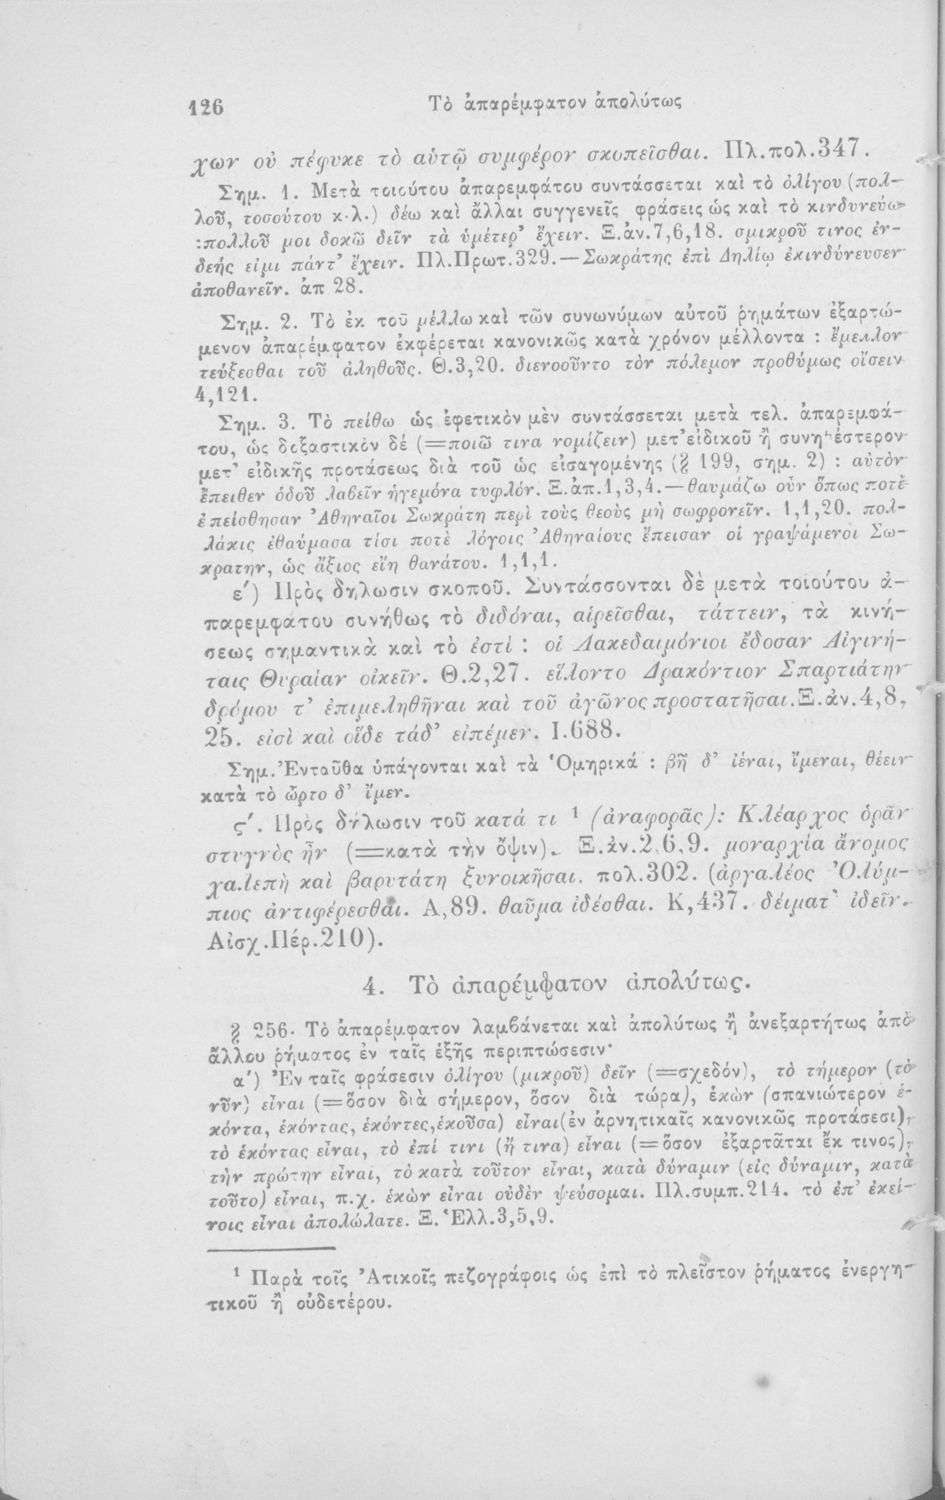 126
Τὸ ἀπαρέμφατον ἀπολύτως
χων οὐ πέφυκε τὸ αὑτῷ συμφέρον σκοπεῖσθαι. Πλ.πολ.347.
Σημ. 1. Μετὰ τοιούτου ἀπαρεμφάτου συντάσσεται καὶ τὸ ὀλίγου (πολ-
λοῦ, τοσούτου κ.λ.) δέω καὶ ἄλλαι συγγενεῖς φράσεις ὡς καὶ τὸ κινδυνεύω
:πολλοῦ μοι δοκῶ δεῖν τὰ ὑμέτερ' ἔχειν. Ξ.ἀν.7,6,18. σμικροῦ τινος ἐν-
δεής εἰμι πάντ' ἔχειν. Πλ.Πρωτ.329.—Σωκράτης ἐπὶ Δηλίῳ ἐκινδύνευσεν
ἀποθανεῖν. ἀπ 28.
Σημ. 2. Τὸ ἐκ τοῦ μέλλω καὶ τῶν συνωνύμων αὐτοῦ ῥημάτων ἐξαρτώ-
μενον ἀπαρέμφατον ἐκφέρεται κανονικῶς κατὰ χρόνον μέλλοντα : ἔμελλον
τεύξεσθαι τοῦ ἀληθοῦς. Θ.3,20. διενοοῦντο τὸν πόλεμον προθύμως οἴσειν
4,121.
Σημ. 3. Τὸ πείθω ὡς ἐφετικὸν μὲν συντάσσεται μετὰ τελ. ἀπαρεμφά-
του, ὡς δοξαστικὸν δέ (=ποιῶ τινα νομίζειν) μετ'εἰδικοῦ ἢ συνηθέστερον
μετ' εἰδικῆς προτάσεως διὰ τοῦ ὡς εἰσαγομένης (§ 199, σημ. 2) : αὐτὸν
ἔπειθεν ὁδοῦ λαβεῖν ἡγεμόνα τυφλόν. Ξ.ἀπ.1,3,4.—θαυμάζω οὖν ὅπως ποτὲ
ἐπείσθησαν Ἀθηναῖοι Σωκράτη περὶ τοὺς θεοὺς μὴ σωφρονεῖν. 1,1,20. πολ-
λάκις ἐθαύμασα τίσι ποτὲ λόγοις Ἀθηναίους ἔπεισαν οἱ γραψάμενοι Σω-
κρατην, ὡς ἄξιος εἴη θανάτου. 1,1,1.
ε΄) Πρὸς δήλωσιν σκοποῦ. Συντάσσονται δὲ μετὰ τοιούτου ἀ-
παρεμφάτου συνήθως τὸ διδόναι, αἱρεῖσθαι, τάττειν, τὰ κινή-
σεως σημαντικὰ καὶ τὸ ἐστί : οἱ Λακεδαιμόνιοι ἔδοσαν Αἰγινή-
ταις Θυραίαν οἰκεῖν. Θ.2,27. εἵλοντο Δρακόντιον Σπαρτιάτην
δρόμου τ' ἐπιμεληθῆναι καὶ τοῦ ἀγῶνος προστατῆσαι.Ξ.ἀν.4,8,
25. εἰσὶ καὶ οἵδε τάδ' εἰπέμεν. Ι.688.
Σημ.Ἐνταῦθα ὑπάγονται καὶ τὰ Ὁμηρικά : βῆ δ' ἰέναι, ἴμεναι, θέειν
κατὰ τὸ ὦρτο δ' ἴμεν.
ϛ΄. Πρὸς δήλωσιν τοῦ κατά τι ¹ (ἀναφορᾶς): Κλέαρχος ὁρᾶν
στυγνὸς ἦν (=κατὰ τὴν ὄψιν). Ξ.ἀν.2,6,9. μοναρχία ἄνομος
χαλεπὴ καὶ βαρυτάτη ξυνοικῆσαι. πολ.302. (ἀργαλέος Ὀλύμ-
πιος ἀντιφέρεσθαι. Α,89. θαῦμα ἰδέσθαι. Κ,437. δείματ' ἰδεῖν.
Αἰσχ.Πέρ.210).
4. Τὸ ἀπαρέμφατον ἀπολύτως.
§ 256. Τὸ ἀπαρέμφατον λαμβάνεται καὶ ἀπολύτως ἢ ἀνεξαρτήτως ἀπὸ
ἄλλου ῥήματος ἐν ταῖς ἑξῆς περιπτώσεσιν·
α΄) Ἐν ταῖς φράσεσιν ὀλίγου (μικροῦ) δεῖν (=σχεδόν), τὸ τήμερον (τὸ
νῦν) εἶναι (=ὅσον διὰ σήμερον, ὅσον διὰ τώρα), ἑκὼν (σπανιώτερον ἑ-
κόντα, ἑκόντας, ἑκόντες,ἑκοῦσα) εἶναι(ἐν ἀρνητικαῖς κανονικῶς προτάσεσι),
τὸ ἑκόντας εἶναι, τὸ ἐπί τινι (ἤ τινα) εἶναι (=ὅσον ἐξαρτᾶται ἔκ τινος),
τὴν πρώτην εἶναι, τὸ κατὰ τοῦτον εἶναι, κατὰ δύναμιν (εἰς δύναμιν, κατὰ
τοῦτο) εἶναι, π.χ. ἑκὼν εἶναι οὐδὲν ψεύσομαι. Πλ.συμπ.214. τὸ ἐπ' ἐκεί-
νοις εἶναι ἀπολώλατε. Ξ.Ἑλλ.3,5,9.
¹ Παρὰ τοῖς Ἀτικοῖς πεζογράφοις ὡς ἐπὶ τὸ πλεῖστον ῥήματος ἐνεργη-
τικοῦ ἢ οὐδετέρου.